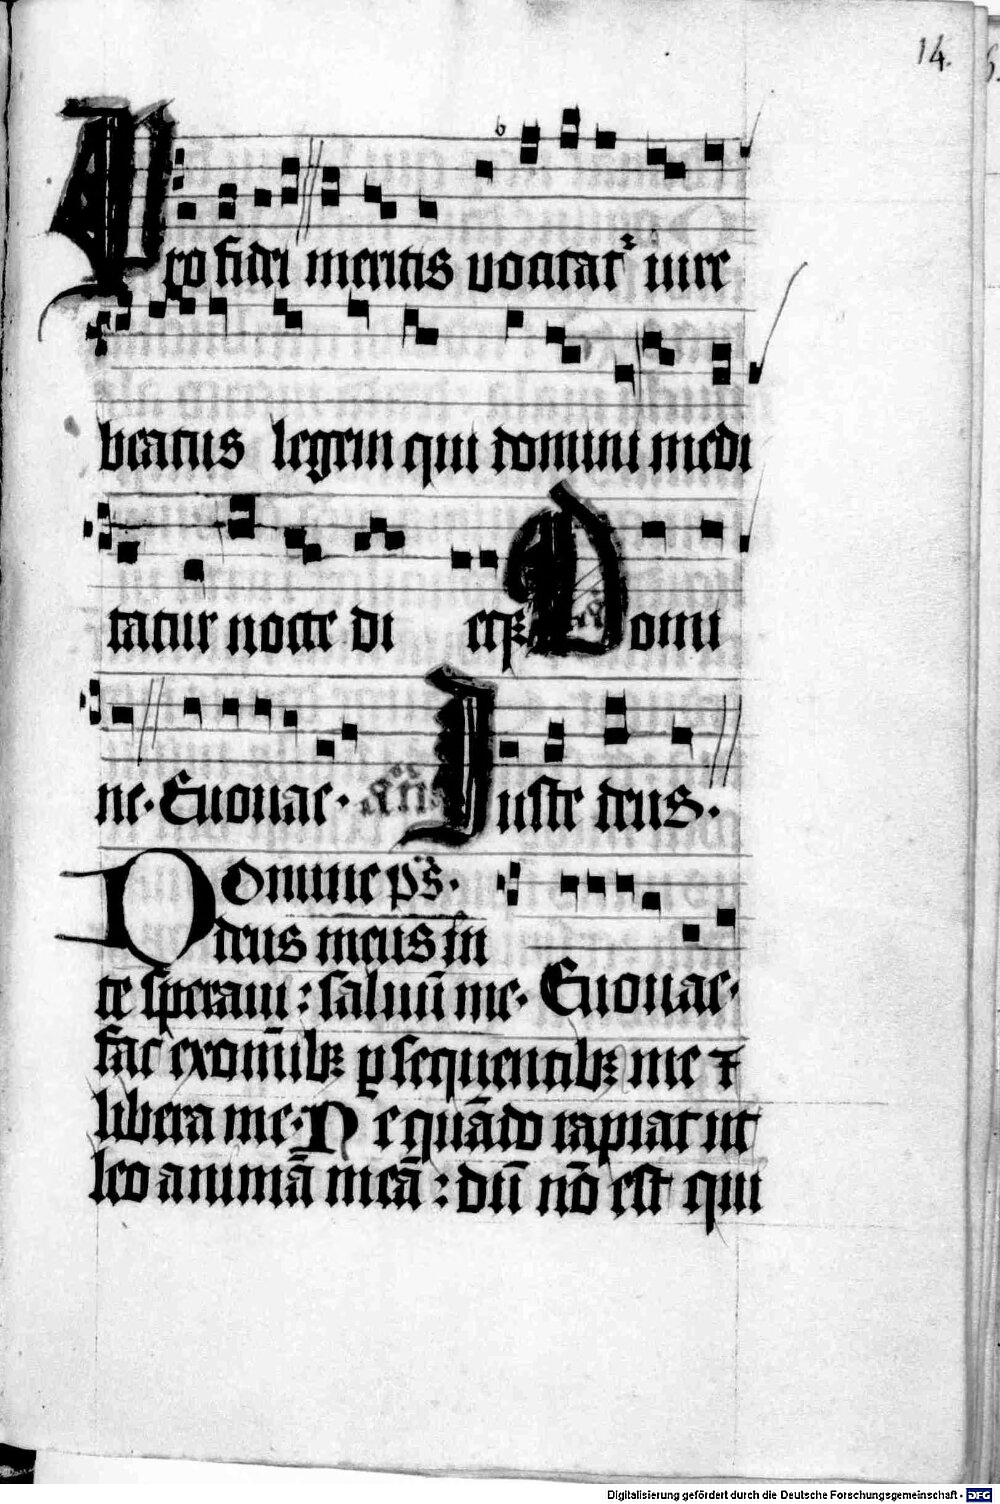 14.
Pro fidei meritis vocitat᷑ iure
beatus legem qui domini medi
tatur nocte di eqꝫ Domi
ne. Euouae. Iuste deus.
Domine p̄s.
deus meus in
te speraui : saluū me. Euouae.
fac ex om̄ibꝫ ꝑsequentibꝫ me ⁊
libera me. Ne quādo rapiat ut
leo animā meā : dū nō est qui
Digitalisierung gefördert durch die Deutsche Forschungsgemeinschaft - DFG